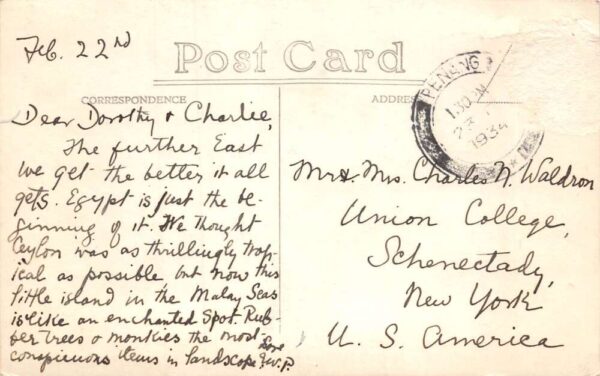 Feb. 22nd
Post Card
CORRESPONDENCE
ADDRESS
PENANG
1.30 PM
1934
Dear Dorothy & Charlie,
The further East
we get the better it all
gets. Egypt is just the be-
ginning of it. We thought
Ceylon was as thrillingly trop-
ical as possible but now this
little island in the Malay Seas
is like an enchanted spot. Rub-
ber trees & monkies the most
conspicuous items in landscape.
Love
Mr & Mrs. Charles N. Waldron
Union College,
Schenectady,
New York
U. S. America